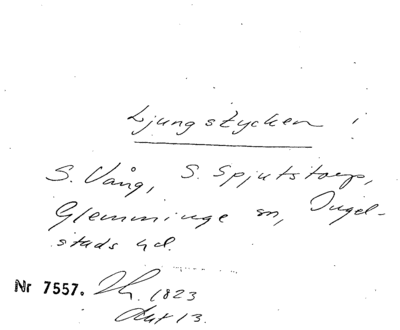 Ljungstycken i
S. Vång, S. Spjutstorp,
Glemminge sn, Ingel-
stads hd.
Nr 7557. 1823
13.